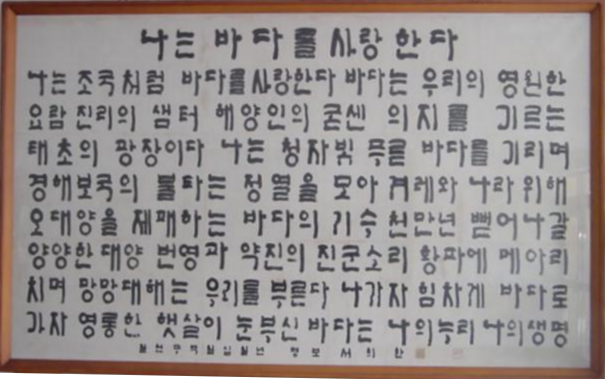 나는 바다를 사랑한다
나는 조국처럼 바다를 사랑한다 바다는 우리의 영원한
요람 진리의 샘터 해양인의 굳센 의지를 기르는
태초의 광장이다 나는 청자빛 푸른 바다를 기리며
경해보국의 불타는 정열을 모아 겨레와 나라 위해
오대양을 제패하는 바다의 기수 천만년 뻗어나갈
양양한 대양 번영과 약진의 진군소리 황파에 메아리
치며 망망대해는 우리를 부른다 나가자 힘차게 바다로
가자 영롱한 햇살이 눈부신 바다는 나의 누리 나의 생명
서희환